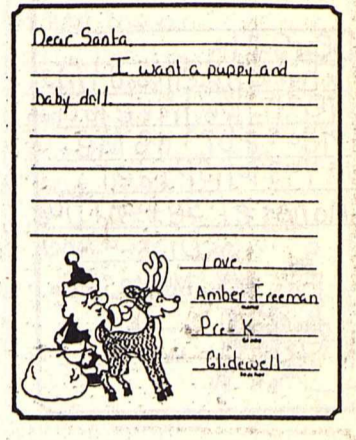 Dear Santa,
I want a puppy and
baby doll.
Love,
Amber Freeman
Pre-K
Glidewell